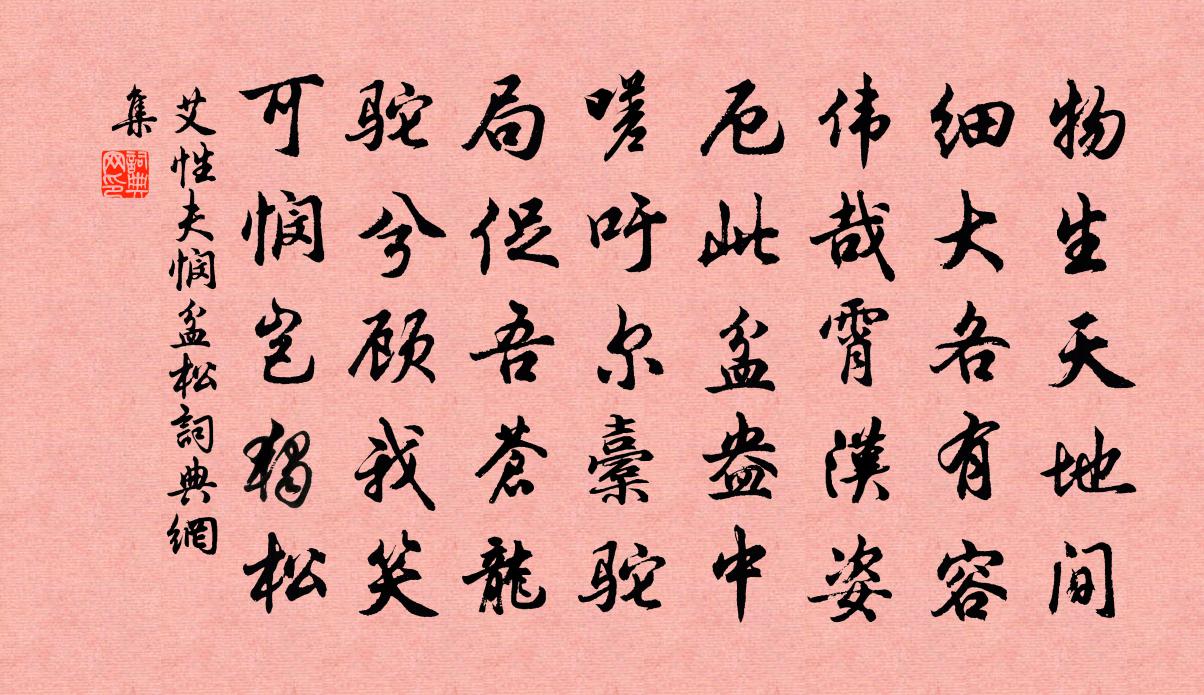 物生天地间
细大各有容
伟哉霄漢姿
厄此盆盎中
嗟吁尔橐驼
局促吾蒼龍
驼兮顾我笑
可悯岂独松
艾性夫悯盆松詞典網
集
詞典
网印